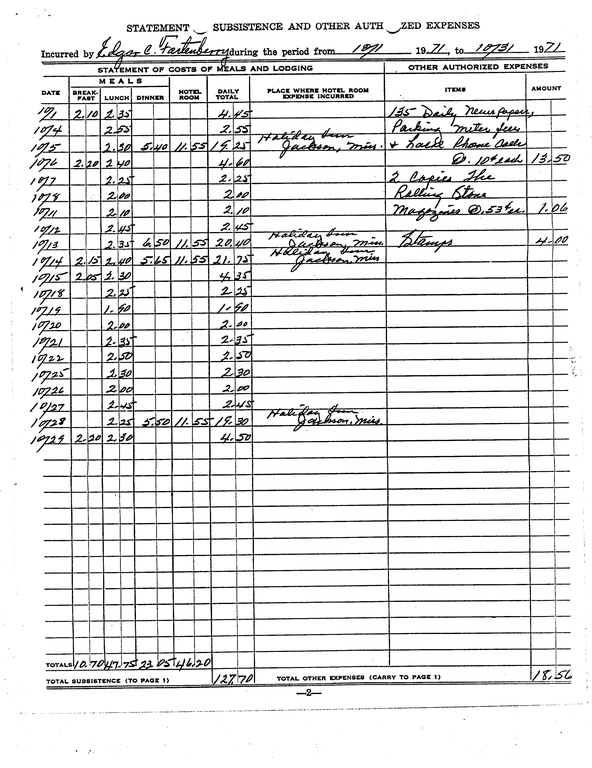 STATEMENT SUBSISTENCE AND OTHER AUTH ZED EXPENSES
Incurred by Edgar C. Fartenberry during the period from 10/1 1971, to 10/31 1971
STATEMENT OF COSTS OF MEALS AND LODGING OTHER AUTHORIZED EXPENSES
MEALS
DATE BREAK-FAST LUNCH DINNER HOTEL ROOM DAILY TOTAL PLACE WHERE HOTEL ROOM EXPENSE INCURRED ITEMS AMOUNT
10/1 2.10 2.35 4.45 135 Daily Newspapers,
10/4 2.55 2.55 Parking Meter fees
10/5 2.30 5.40 11.55 19.25 Holiday Inn Jackson, Miss. + Local Phone Calls
10/6 2.20 2.40 4.60 @ .10¢ each 13.50
10/7 2.25 2.25 2 Copies The
10/8 2.00 2.00 Rolling Stone
10/11 2.10 2.10 Magazines @ .53¢ ea. 1.06
10/12 2.45 2.45
10/13 2.35 6.50 11.55 20.40 Holiday Inn Jackson, Miss. Stamps 4.00
10/14 2.15 2.40 5.65 11.55 21.75 Holiday Inn Jackson, Miss
10/15 2.05 2.30 4.35
10/18 2.25 2.25
10/19 1.90 1.90
10/20 2.00 2.00
10/21 2.35 2.35
10/22 2.50 2.50
10/25 2.30 2.30
10/26 2.00 2.00
10/27 2.45 2.45
10/28 2.25 5.50 11.55 19.30 Holiday Inn Jackson, Miss.
10/29 2.20 2.30 4.50
TOTALS 10.70 47.75 23.05 46.20
TOTAL SUBSISTENCE (TO PAGE 1) 127.70 TOTAL OTHER EXPENSES (CARRY TO PAGE 1) 18.56
—2—